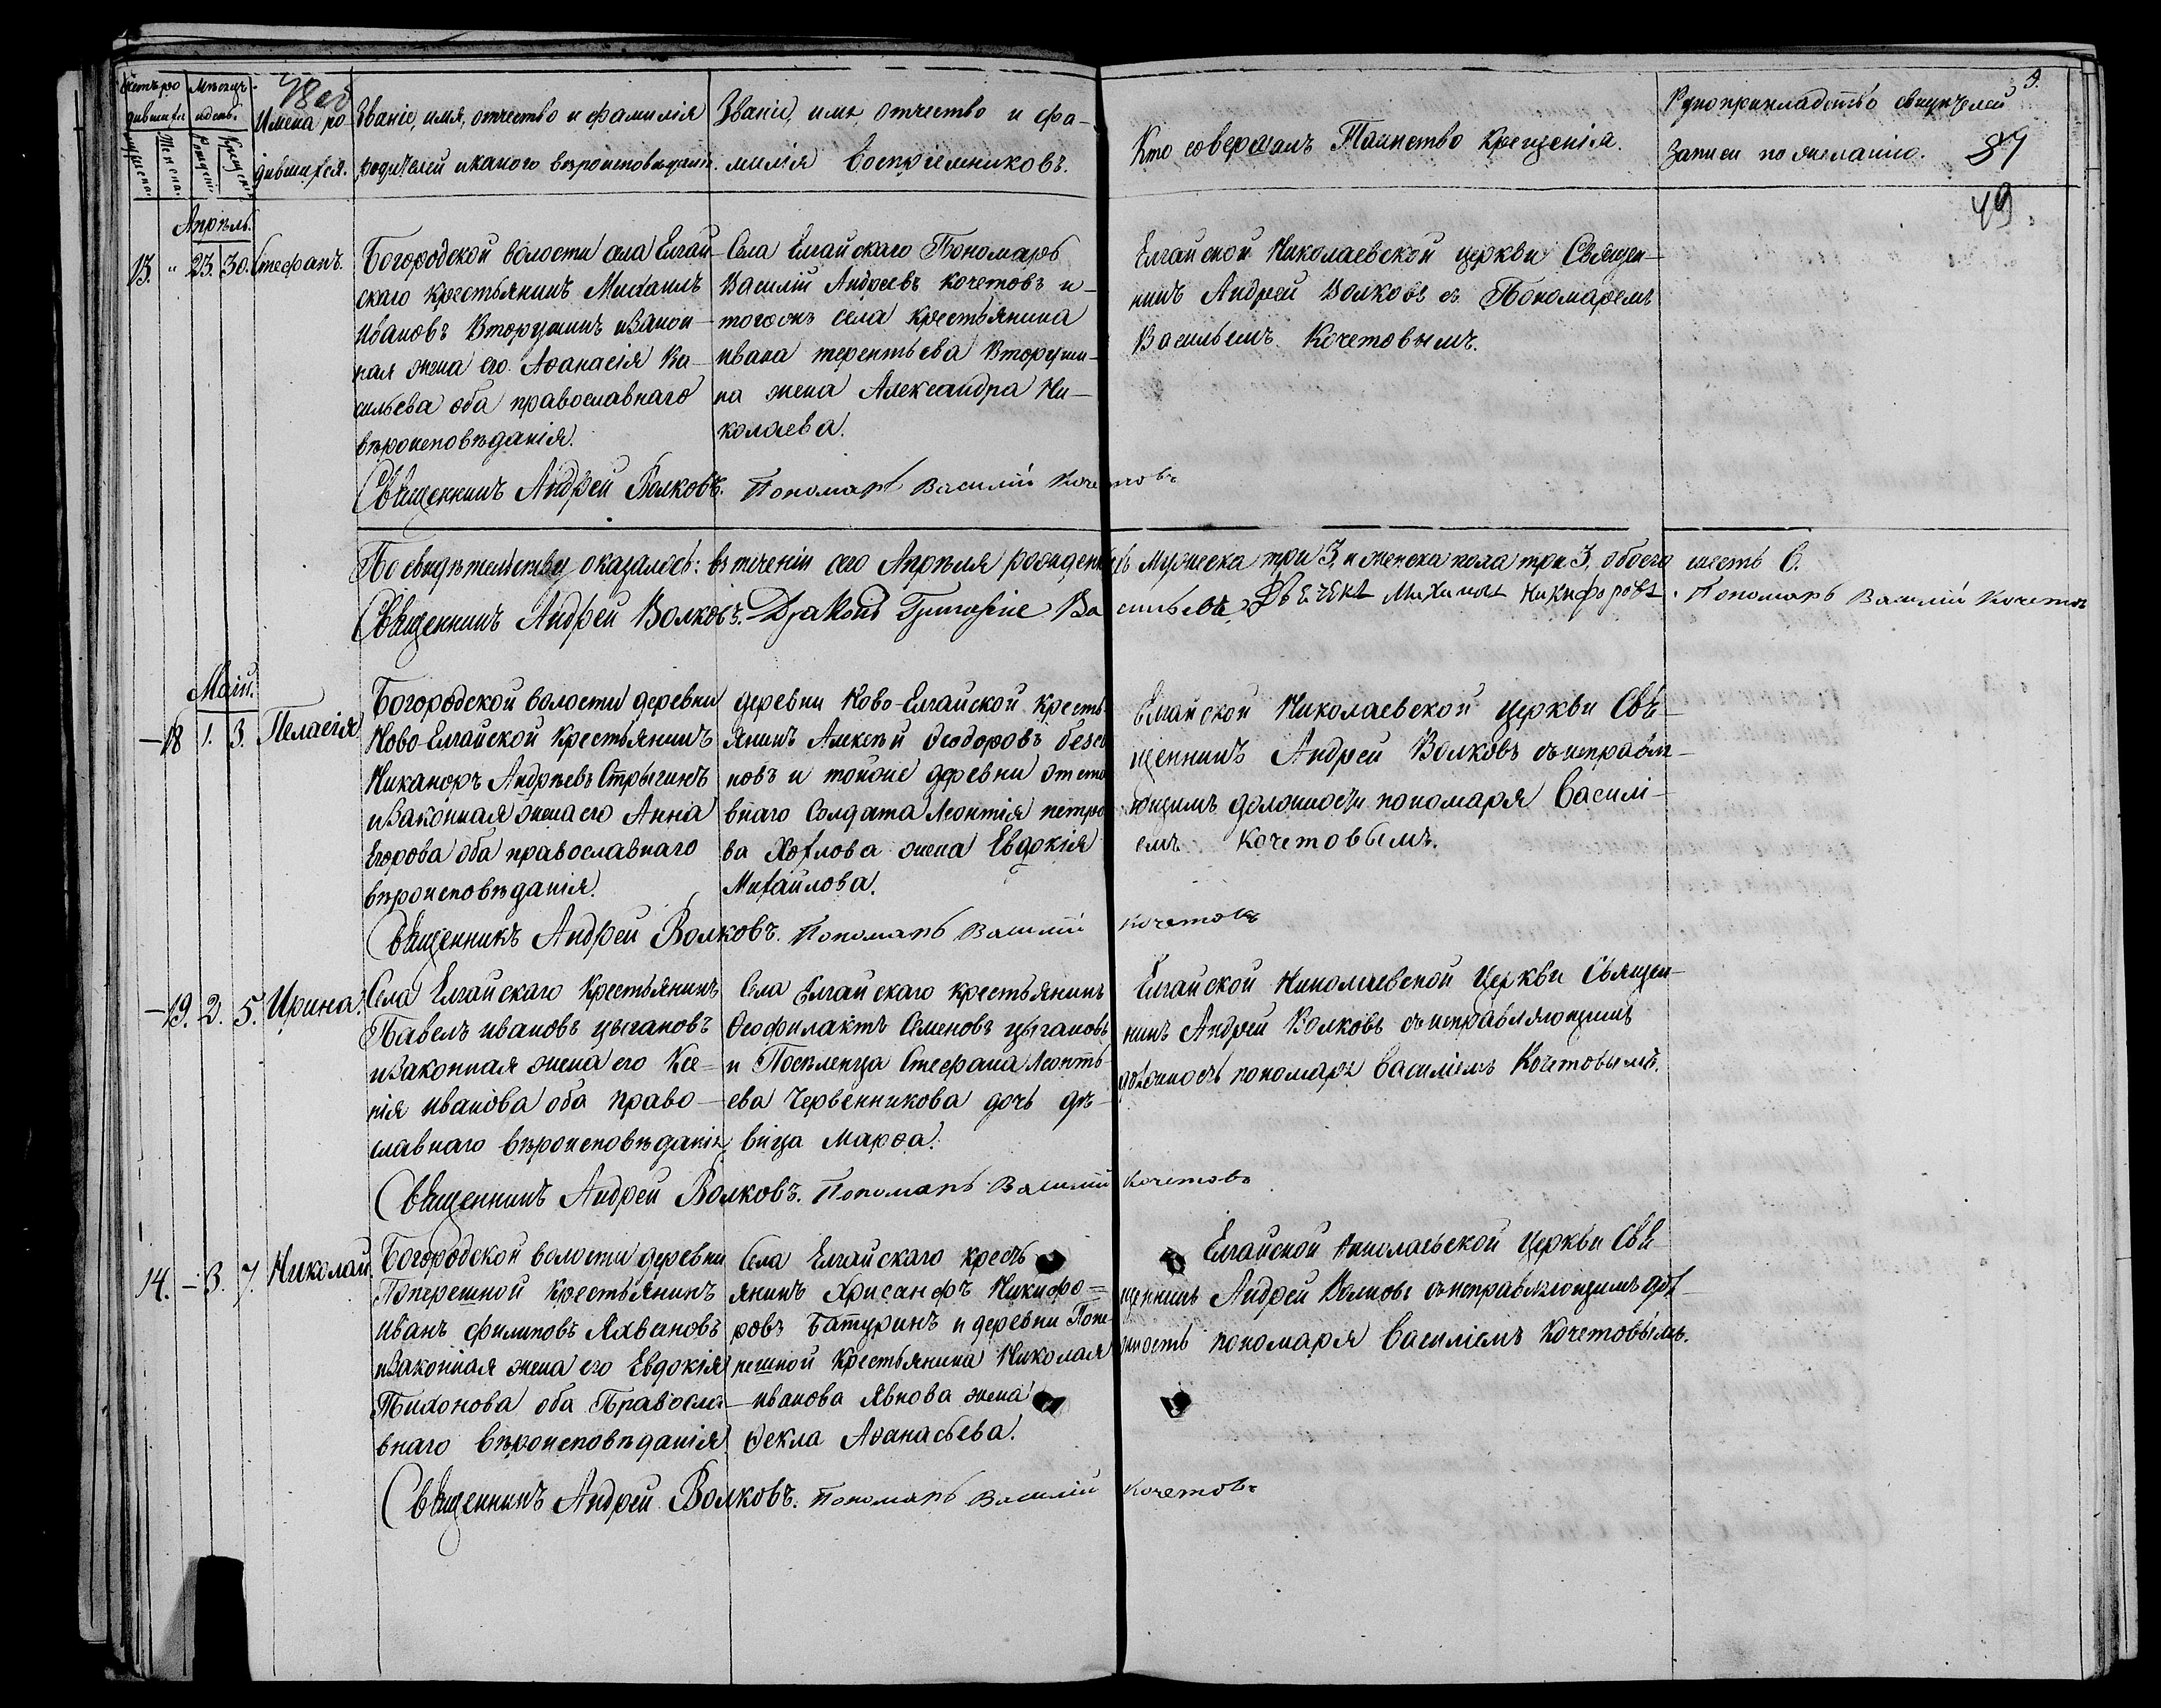 Счетъ ро
дившихся
Мѣсяцъ
и день.
Имена ро
дившихся.
Званіе, имя, отчество и фамилія
родителей и какого вѣроисповѣданія.
Званіе, имя, отчество и фа-
милія Воспріемниковъ.
Кто совершалъ Таинство Крещенія.
Рукоприкладство свидѣтелей
Записи по желанію.
9.
87
49
Апрѣль.
13. " 23. 30. Стефанъ.
Богородской волости села Елгай-
скаго Крестьянинъ Михаилъ
Ивановъ Вторушинъ и Закон-
ная жена его Аѳанасія Ва-
сильева оба православнаго
вѣроисповѣданія.
Села Елгайскаго Пономарь
Василій Андреевъ Кочетовъ и
тогожъ села Крестьянина
Ивана терентьева Вторуши-
на жена Александра Ни-
колаева.
Елгайской Николаевской церкви Священ-
никъ Андрей Волковъ съ Пономаремъ
Васильемъ Кочетовымъ.
Священникъ Андрей Волковъ. Пономарь Василій Кочетовъ
По свидѣтельству оказалось: въ теченіи сего Апрѣля рожденныхъ Мужеска три 3, и женска пола три 3, обоего шесть 6.
Священникъ Андрей Волковъ. Діаконъ Григорій Васильевъ, Дьячекъ Никифоровъ. Пономарь Василій Кочетовъ
Маій.
— 18 1. 3. Пелагія
Богородской волости деревни
Ново-Елгайской Крестьянинъ
Никаноръ Андреевъ Стрыгинъ
и Законная жена его Анна
Егорова оба православнаго
вѣроисповѣданія.
деревни Ново-Елгайской Кресть
янинъ Алексѣй Ѳеодоровъ
новъ и тойже деревни отста
внаго Солдата Леонтія петро
ва Хохлова жена Евдокія
Михайлова.
Елгайской Николаевской церкви Свя-
щенникъ Андрей Волковъ съ исправля-
ющимъ должность пономаря Василі-
емъ Кочетовымъ.
Священникъ Андрей Волковъ. Пономарь Василій Кочетовъ
— 19. 2. 5. Ирина.
Села Елгайскаго Крестьянинъ
Павелъ Ивановъ Цыгановъ
и Законная жена его Ксе-
нія Иванова оба право-
славнаго вѣроисповѣданія
Села Елгайскаго Крестьянинъ
Ѳеофилактъ Семеновъ Цыгановъ
и Поселенца Стефана Леонть-
ева Червенникова дочь дѣ-
вица Марѳа.
Елгайской Николаевской Церкви Священ-
никъ Андрей Волковъ съ исправляющимъ
должность пономаря Василіемъ Кочетовымъ.
Священникъ Андрей Волковъ. Пономарь Василій Кочетовъ
14. — 3. 7. Николай.
Богородской волости деревни
Поперешной Крестьянинъ
Иванъ филиповъ
и Законная жена его Евдокія
Тихонова оба Правосла-
внаго вѣроисповѣданія
Села Елгайскаго кресть
янинъ Хрисанфъ Никифо=
ровъ Батуринъ и деревни Попе-
решной Крестьянина Николая
Иванова жена
Ѳекла Аѳанасьева.
Елгайской Николаевской Церкви Свя-
щенникъ Андрей Волковъ съ исправляющимъ дол-
жность пономаря Василіемъ Кочетовымъ.
Священникъ Андрей Волковъ. Пономарь Василій Кочетовъ